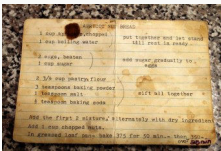 BREAD
1 cup chopped
1 cup boiling water
put together and let stand
till rest is ready
2 eggs, beaten
1 cup sugar
add sugar gradually to
eggs
2 3/4 cup pastry flour
3 teaspoons baking powder
1 teaspoon salt
teaspoon baking soda
sift all together
Add the first 2 mixtures, alternately with dry ingredients
And 1 cup chopped nuts.
In greased loaf pan. bake 375 for 30 min. then 350